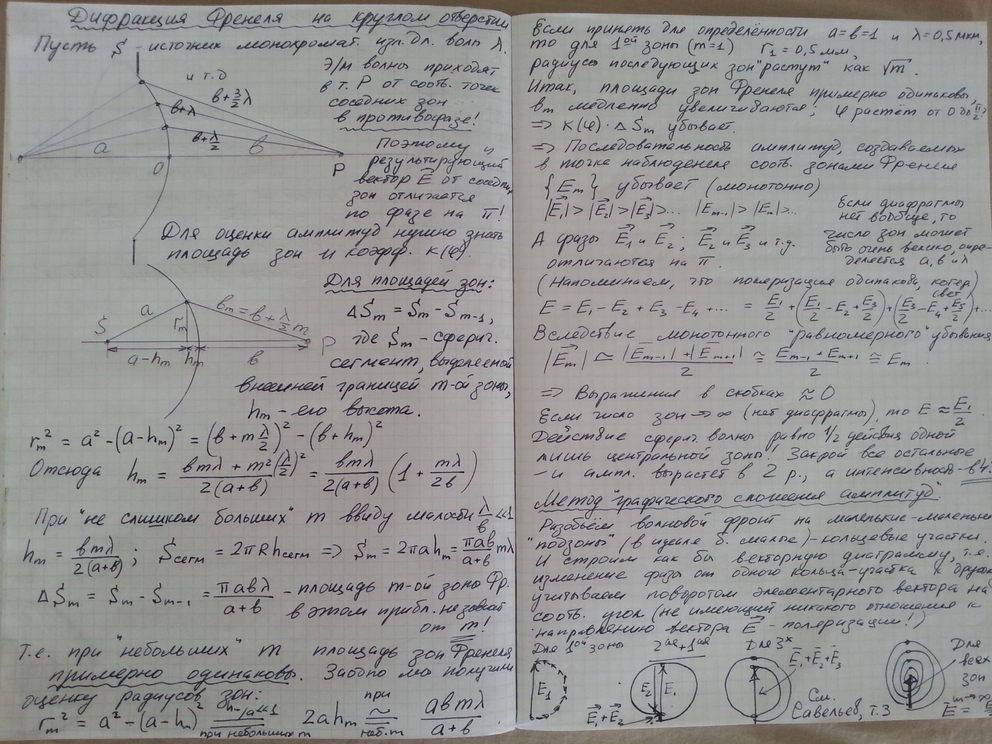 Дифракция Френеля на круглом отверстии
Пусть S - источник монохромат. изл. дл. волн λ.
Э/м волны приходят
в т. P от соотв. точек
соседних зон
в противофазе!
Поэтому и
результирующий
вектор E⃗ от соседних
зон отличается
по фазе на π!
S
и т.д
b+3/2λ
b+λ
b+λ/2
a
b
O
P
Для оценки амплитуд нужно знать
площадь зон и коэфф. K(φ).
Для площадей зон:
ΔSm = Sm - Sm-1,
где Sm - сферич.
сегмент, выделенный
внешней границей m-ой зоны,
hm - его высота.
S
a
rm
bm = b + λ/2 m
P
a-hm
hm
b
rm² = a² - (a-hm)² = (b + mλ/2)² - (b+hm)²
Отсюда hm = (bmλ + m²(λ/2)²)/(2(a+b)) = bmλ/(2(a+b)) (1 + mλ/2b)
При "не слишком больших" m ввиду малости λ/b ≪ 1
hm = bmλ/(2(a+b)); Sсегм = 2πRhсегм ⇒ Sm = 2πahm = πab/(a+b) mλ
ΔSm = Sm - Sm-1 = πabλ/(a+b) - площадь m-ой зоны Фр.
в этом прибл. не зависит
от m!
Т.е. при "небольших" m площадь зон Френеля
примерно одинаковы.
оценку радиусов зон:
rm² = a² - (a-hm)² = 2ahm ≅ abmλ/(a+b)
при небольших m
при
неб. m
Если принять для определённости a=b=1 и λ=0,5мкм,
то для 1ой зоны (m=1) r1 = 0,5 мм
радиусы последующих зон "растут" как √m.
Итак, площади зон Френеля примерно одинаковы,
bm медленно увеличиваются; φ растёт от 0 до π/2
⇒ K(φ)·ΔSm убывает.
⇒ Последовательность амплитуд, создаваемых
в точке наблюдения соотв. зонами Френеля
{Em} убывает (монотонно)
|E⃗1|>|E⃗2|>|E⃗3|>... |Em-1|>|Em|>...
Если диафрагмы
нет вообще, то
число зон может
быть очень велико, опре-
деляется a, b и λ
А фазы E⃗1 и E⃗2; E⃗2 и E⃗3 и т.д.
отличаются на π.
(Напоминаем, что поляризация одинакова, когер.
свет)
E = E1 - E2 + E3 - E4 + ... = E1/2 + (E1/2 - E2 + E3/2) + (E3/2 - E4 + E5/2) + ...
Вследствие монотонного "равномерного" убывания
|E⃗m| ≃ (|Em-1| + |Em+1|)/2 ≅ (Em-1 + Em+1)/2 ≅ Em
⇒ Выражения в скобках ≈ 0
Если число зон → ∞ (нет диафрагмы), то E ≈ E1/2.
Действие сферич. волны равно 1/2 действия одной
лишь центральной зоны! Закрой все остальное
- и ампл. вырастет в 2 р., а интенсивность - в 4.
Метод "графического сложения амплитуд".
Разобьём волновой фронт на маленькие-маленькие
"подзоны" (в идеале б. малые) - кольцевые участки.
И строим как бы векторную диаграмму, т.е.
изменение фазы от одного кольца-участка к другому
учитываем поворотом элементарного вектора на
соотв. угол (не имеющий никакого отношения к
направлению вектора E⃗ - поляризации!)
Для 1ой зоны
2ая+1ая
Для 3х
Для
всех
зон
E1
E2
E1
E⃗1+E⃗2
E⃗1+E⃗2+E⃗3
См.
Савельев, т.3
m→∞